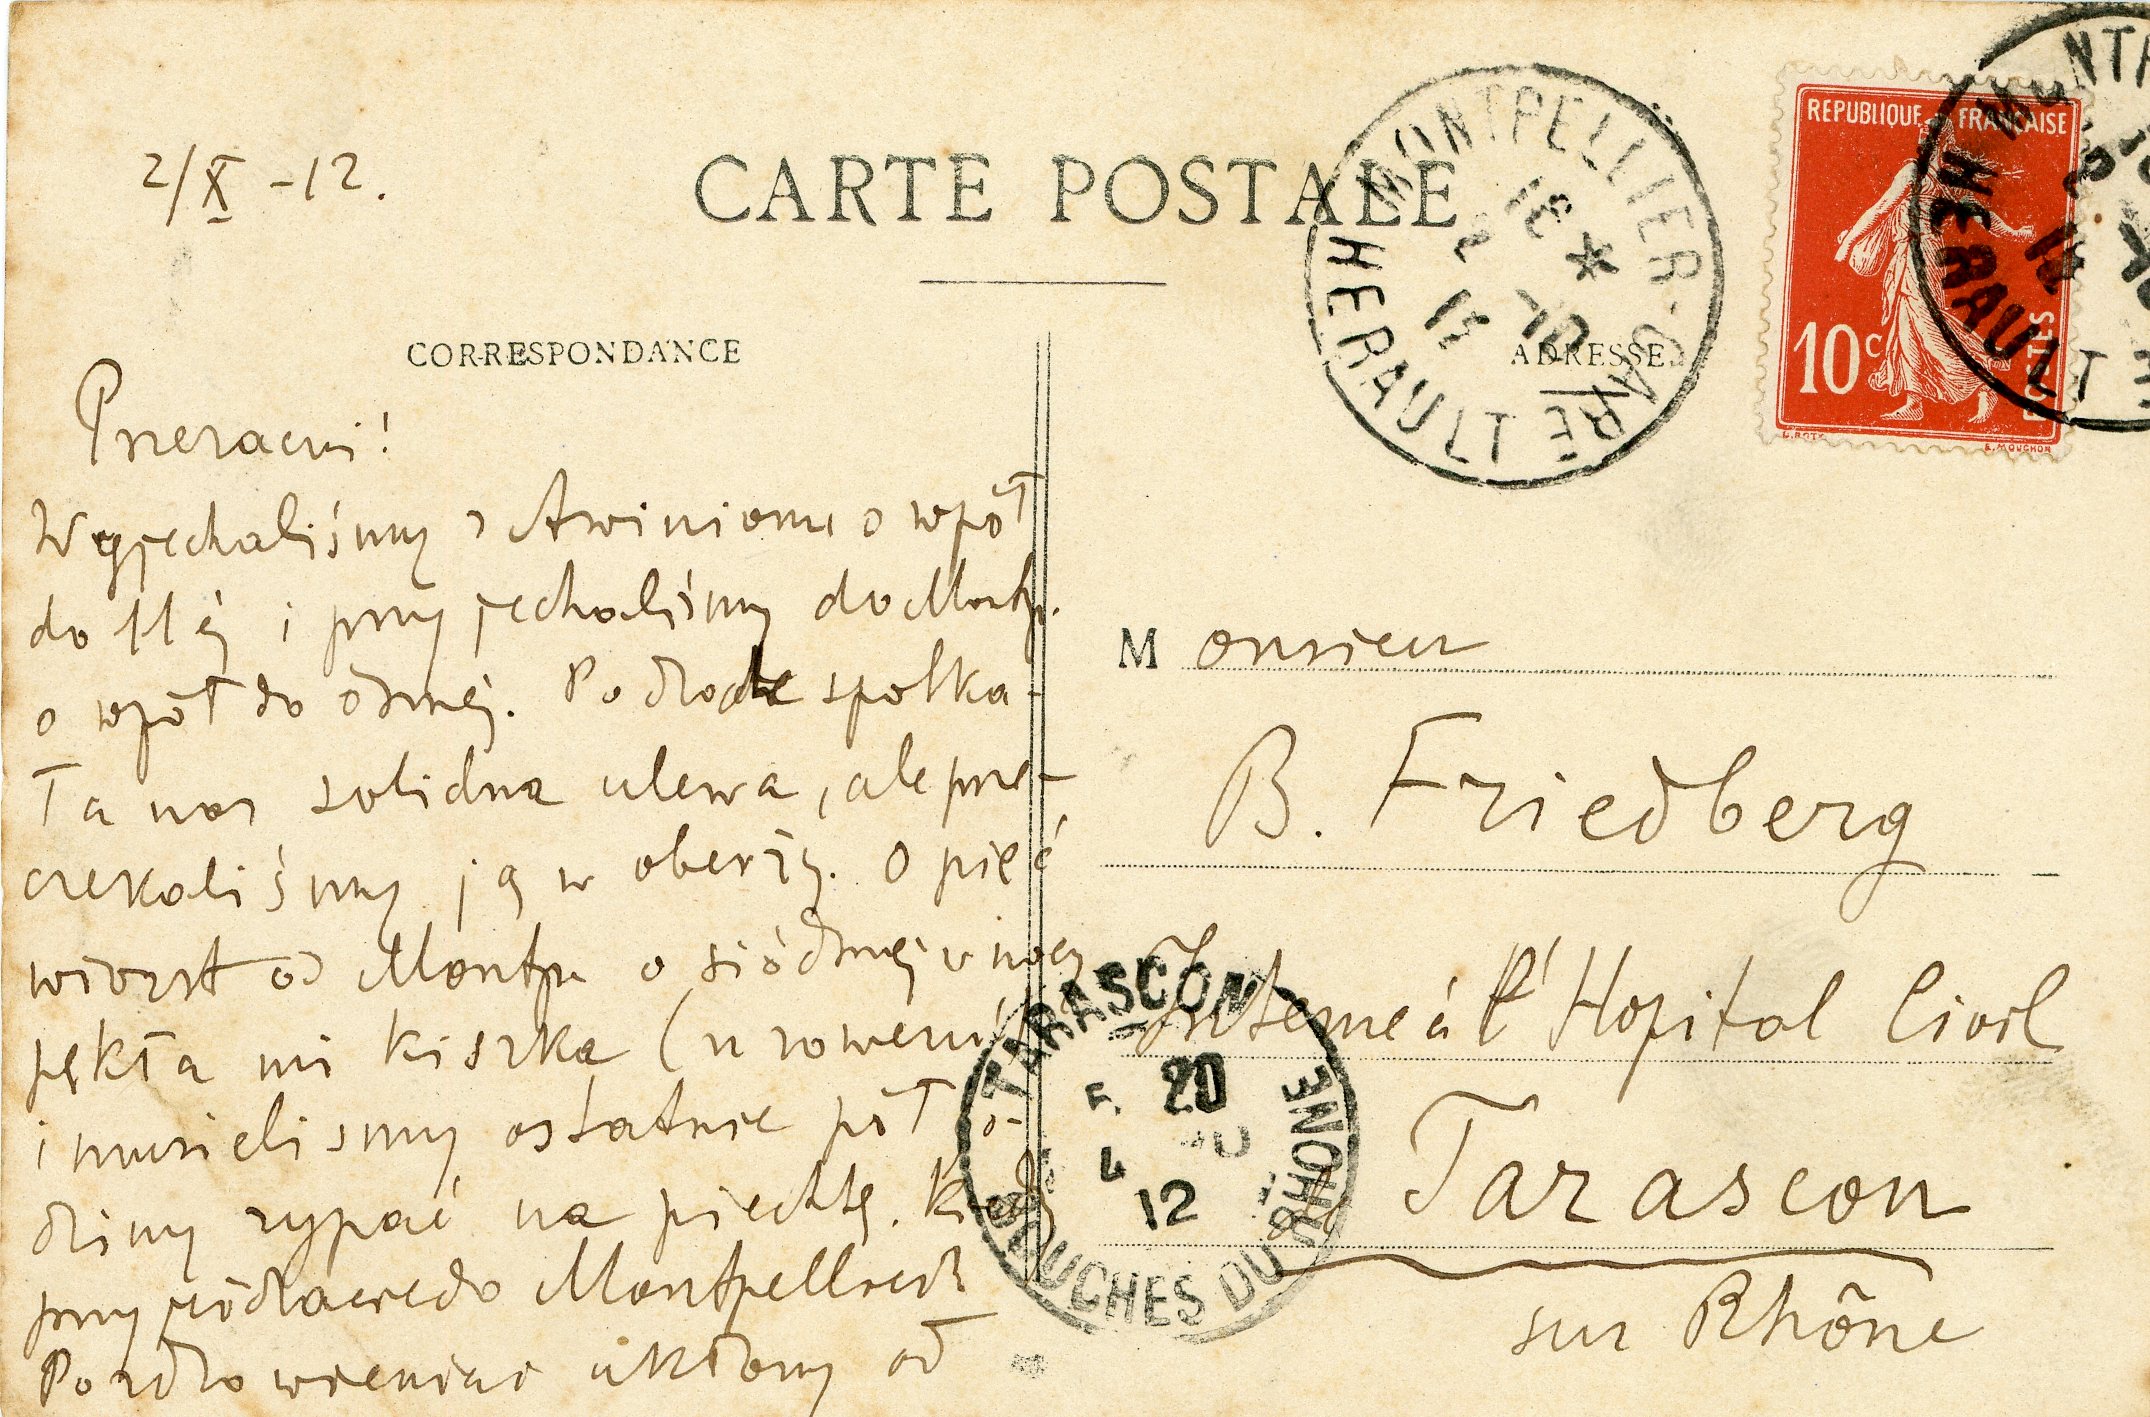 2/X -12.
CARTE POSTALE
CORRESPONDANCE
ADRESSE
REPUBLIQUE FRANCAISE
10c
POSTES
L. ROTY
E. MOUCHON
MONTPELLIER-GARE
HERAULT
MONT
HERAULT
Wyjechaliśmy z Awinionu o wpół
do 11ej i przyjechaliśmy do Montp.
o wpół do ósmej. Po drodze spotka-
ła nas solidna ulewa, ale prze-
czekaliśmy ją w oberży. O pięć
wiorst od Montp. o siódmej w nocy
pękła mi kiszka (u roweru)
i musieliśmy ostatnie pół go-
dziny rypać na piechtę. Kiedy
przyjedziecie do Montpellier?
Pozdrowienia i ukłony od
Monsieur
B. Friedberg
Interne à l'Hopital Civil
Tarascon
sur Rhône
TARASCON
20
4
12
BOUCHES DU RHONE